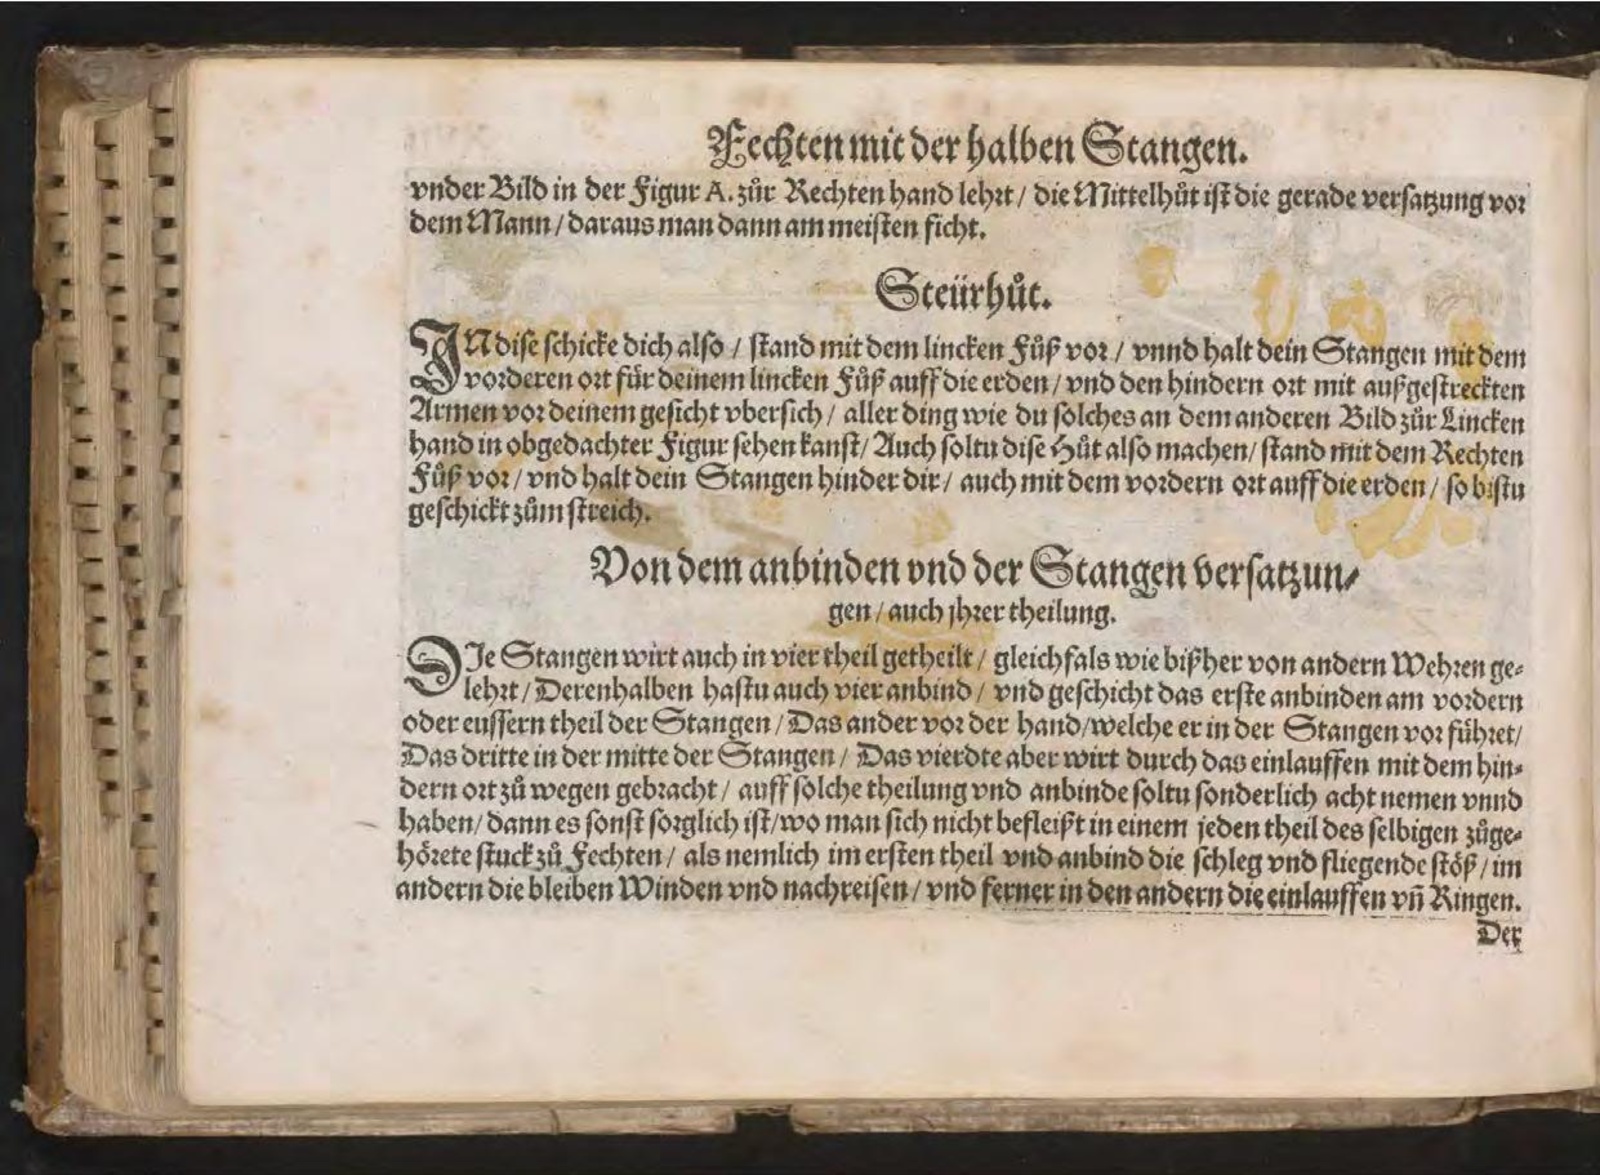 Fechten mit der halben Stangen.
vnder Bild in der Figur A. zůr Rechten hand lehrt / die Mittelhůt ist die gerade versatzung vor
dem Mann / daraus man dann am meisten ficht.
Steürhůt.
IN dise schicke dich also / stand mit dem lincken Fůß vor / vnnd halt dein Stangen mit dem
vorderen ort für deinem lincken Fůß auff die erden / vnd den hindern ort mit außgestreckten
Armen vor deinem gesicht vbersich / aller ding wie du solches an dem anderen Bild zůr Lincken
hand in obgedachter Figur sehen kanst / Auch soltu dise Hůt also machen / stand mit dem Rechten
Fůß vor / vnd halt dein Stangen hinder dir / auch mit dem vordern ort auff die erden / so bistu
geschickt zům streich.
Von dem anbinden vnd der Stangen versatzun⸗
gen / auch jhrer theilung.
DIe Stangen wirt auch in vier theil getheilt / gleichfals wie bißher von andern Wehren ge⸗
lehrt / Derenhalben hastu auch vier anbind / vnd geschicht das erste anbinden am vordern
oder eussern theil der Stangen / Das ander vor der hand / welche er in der Stangen vor führet /
Das dritte in der mitte der Stangen / Das vierdte aber wirt durch das einlauffen mit dem hin⸗
dern ort zů wegen gebracht / auff solche theilung vnd anbinde soltu sonderlich acht nemen vnnd
haben / dann es sonst sorglich ist / wo man sich nicht befleißt in einem jeden theil des selbigen zůge⸗
hörete stuck zů Fechten / als nemlich im ersten theil vnd anbind die schleg vnd fliegende stöß / im
andern die bleiben Winden vnd nachreisen / vnd ferner in den andern die einlauffen vñ Ringen.
Der